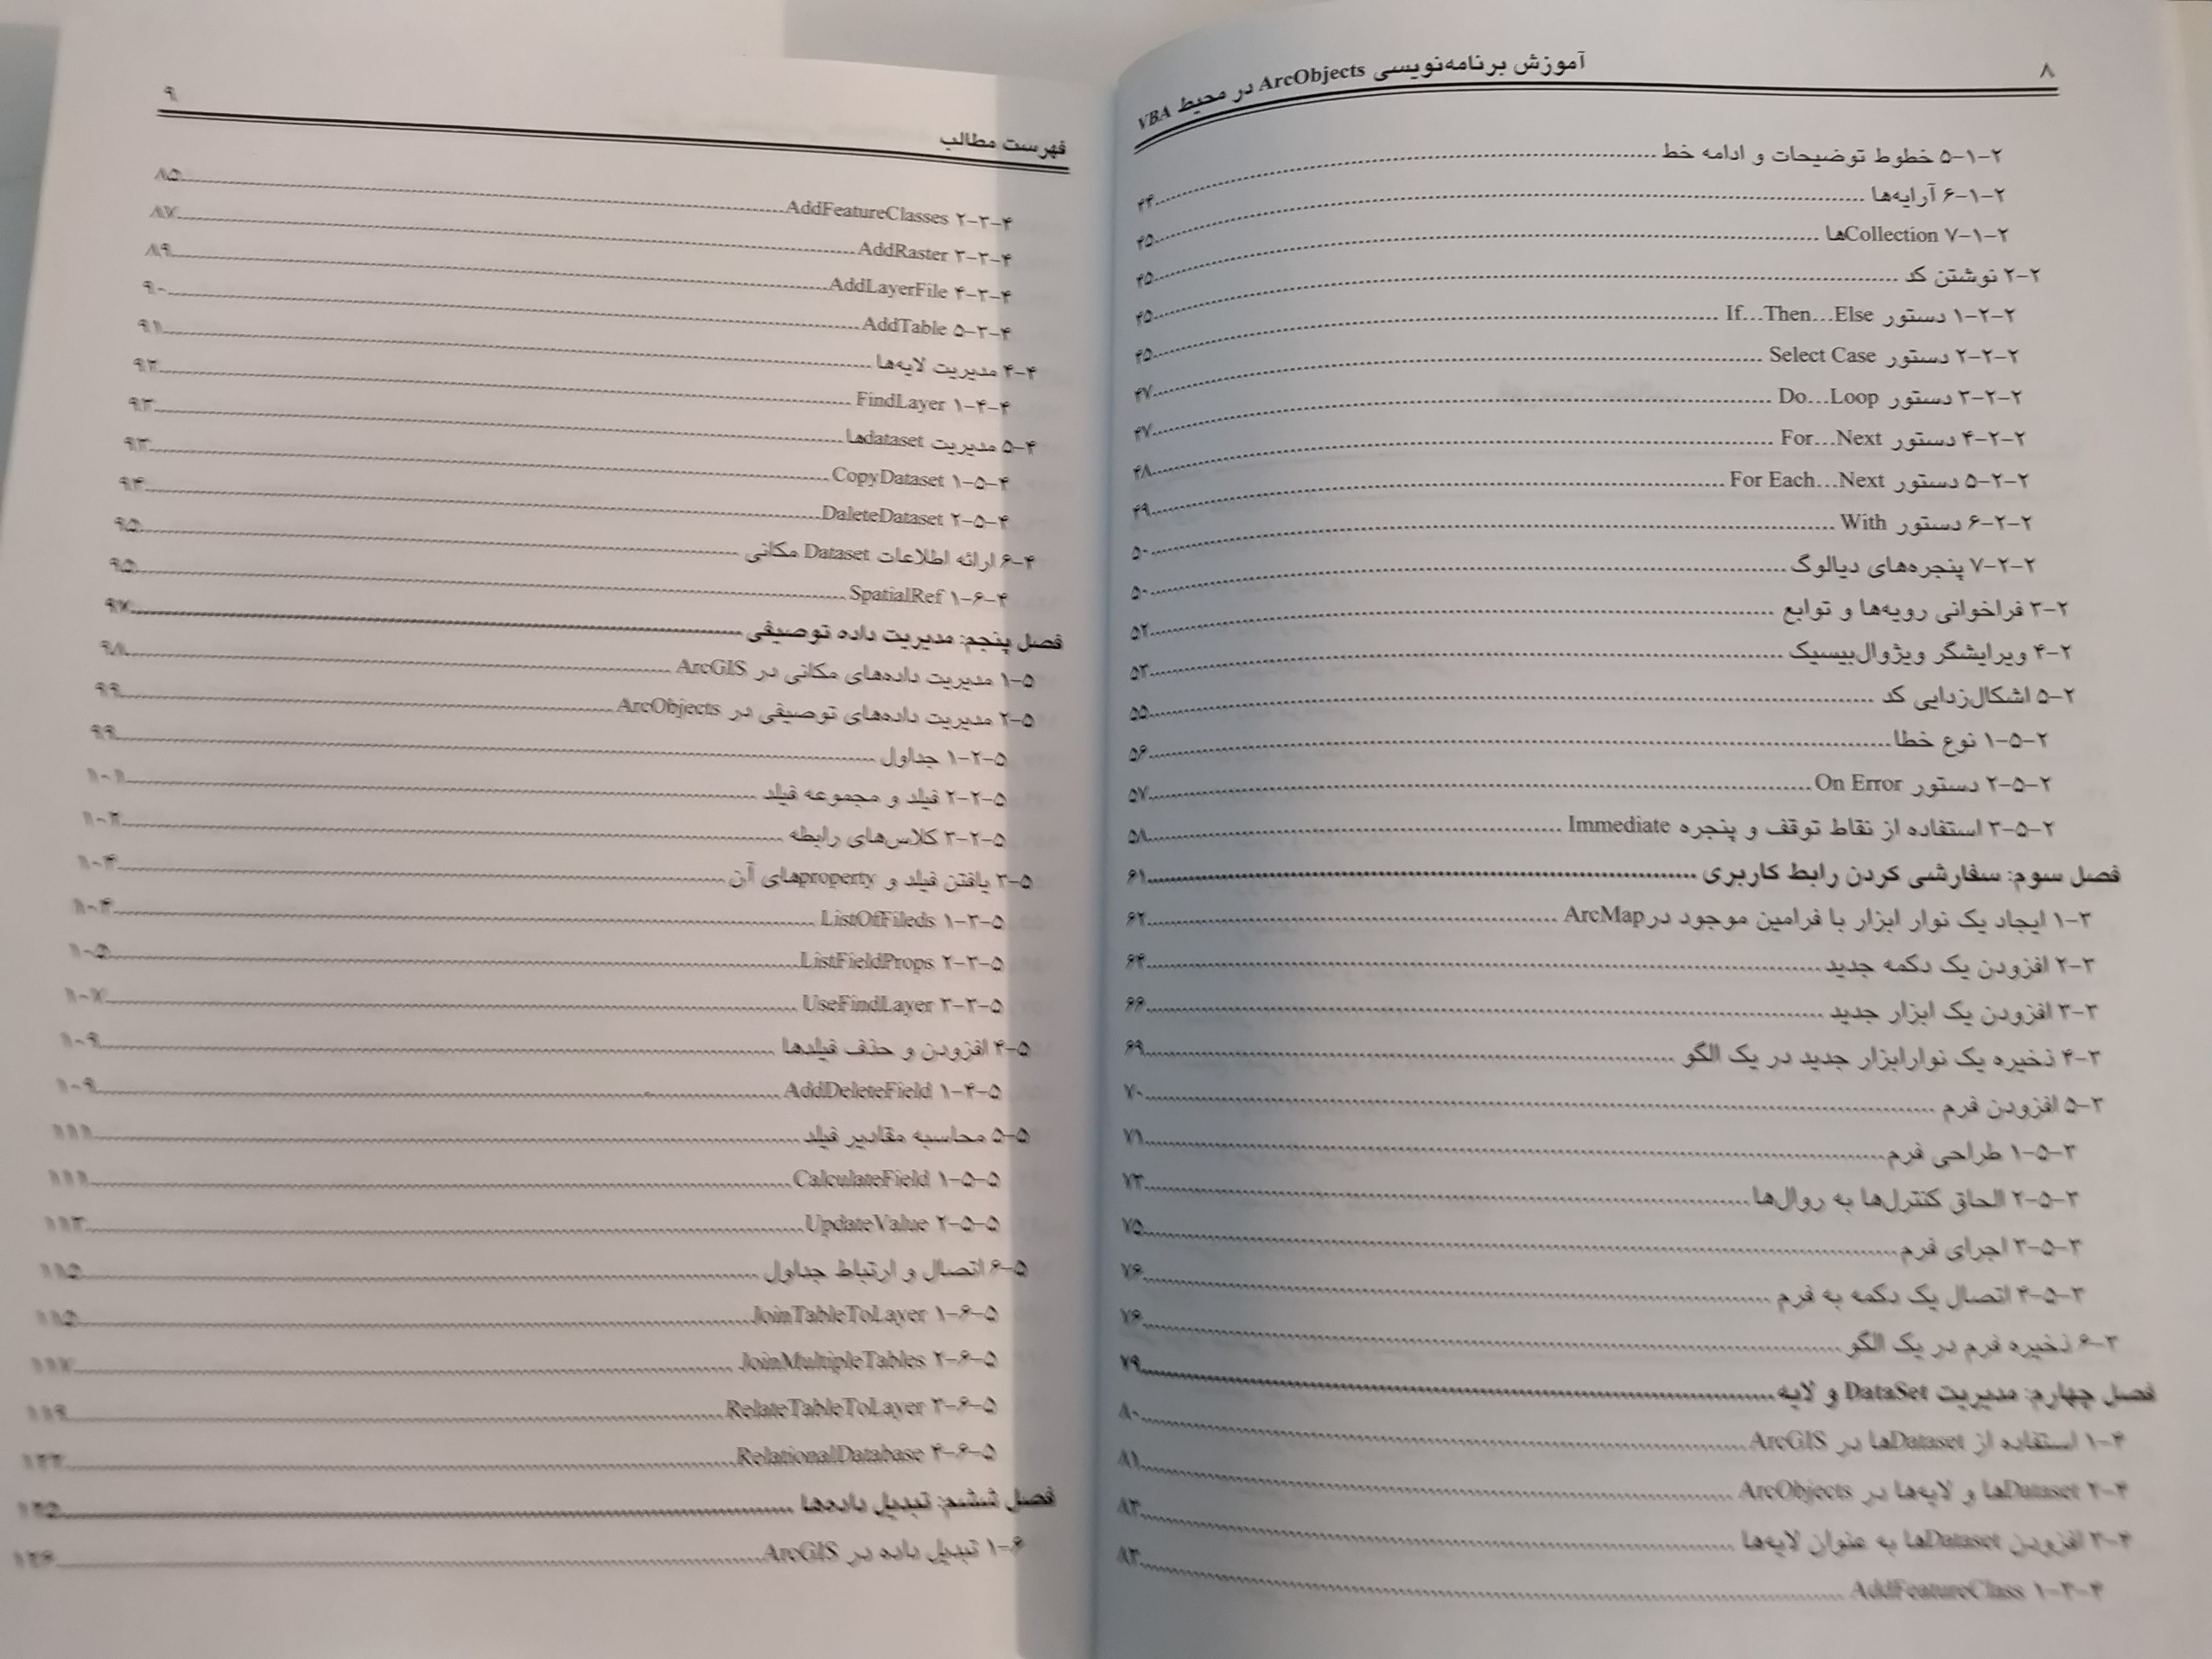 ۸
آموزش برنامه‌نویسی ArcObjects در محیط VBA
۲-۱-۵ خطوط توضیحات و ادامه خط ۴۴
۲-۱-۶ آرایه‌ها ۴۵
۲-۱-۷ Collectionها ۴۵
۲-۲ نوشتن کد ۴۵
۲-۲-۱ دستور If...Then...Else ۴۵
۲-۲-۲ دستور Select Case ۴۷
۲-۲-۳ دستور Do...Loop ۴۷
۲-۲-۴ دستور For...Next ۴۸
۲-۲-۵ دستور For Each...Next ۴۹
۲-۲-۶ دستور With ۵۰
۲-۲-۷ پنجره‌های دیالوگ ۵۰
۲-۳ فراخوانی رویه‌ها و توابع ۵۲
۲-۴ ویرایشگر ویژوال‌بیسیک ۵۳
۲-۵ اشکال‌زدایی کد ۵۵
۲-۵-۱ نوع خطا ۵۶
۲-۵-۲ دستور On Error ۵۷
۲-۵-۳ استفاده از نقاط توقف و پنجره Immediate ۵۸
فصل سوم: سفارشی کردن رابط کاربری ۶۱
۳-۱ ایجاد یک نوار ابزار با فرامین موجود در ArcMap ۶۲
۳-۲ افزودن یک دکمه جدید ۶۴
۳-۳ افزودن یک ابزار جدید ۶۶
۳-۴ ذخیره یک نوارابزار جدید در یک الگو ۶۹
۳-۵ افزودن فرم ۷۰
۳-۵-۱ طراحی فرم ۷۱
۳-۵-۲ الحاق کنترل‌ها به روال‌ها ۷۳
۳-۵-۳ اجرای فرم ۷۵
۳-۵-۴ اتصال یک دکمه به فرم ۷۶
۳-۶ ذخیره فرم در یک الگو ۷۶
فصل چهارم: مدیریت DataSet و لایه ۷۹
۴-۱ استفاده از Datasetها در ArcGIS ۸۰
۴-۲ Datasetها و لایه‌ها در ArcObjects ۸۱
۴-۳ افزودن Datasetها به عنوان لایه‌ها ۸۳
۴-۳-۱ AddFeatureClass ۸۳
۹
فهرست مطالب
۴-۳-۲ AddFeatureClasses ۸۵
۴-۳-۳ AddRaster ۸۷
۴-۳-۴ AddLayerFile ۸۹
۴-۳-۵ AddTable ۹۰
۴-۴ مدیریت لایه‌ها ۹۱
۴-۴-۱ FindLayer ۹۲
۴-۵ مدیریت datasetها ۹۳
۴-۵-۱ CopyDataset ۹۳
۴-۵-۲ DaleteDataset ۹۴
۴-۶ ارائه اطلاعات Dataset مکانی ۹۵
۴-۶-۱ SpatialRef ۹۵
فصل پنجم: مدیریت داده توصیفی ۹۷
۵-۱ مدیریت داده‌های مکانی در ArcGIS ۹۸
۵-۲ مدیریت داده‌های توصیفی در ArcObjects ۹۹
۵-۲-۱ جداول ۹۹
۵-۲-۲ فیلد و مجموعه فیلد ۱۰۱
۵-۲-۳ کلاس‌های رابطه ۱۰۲
۵-۳ یافتن فیلد و propertyهای آن ۱۰۴
۵-۳-۱ ListOfFileds ۱۰۴
۵-۳-۲ ListFieldProps ۱۰۵
۵-۳-۳ UseFindLayer ۱۰۷
۵-۴ افزودن و حذف فیلدها ۱۰۹
۵-۴-۱ AddDeleteField ۱۰۹
۵-۵ محاسبه مقادیر فیلد ۱۱۱
۵-۵-۱ CalculateField ۱۱۱
۵-۵-۲ UpdateValue ۱۱۳
۵-۶ اتصال و ارتباط جداول ۱۱۵
۵-۶-۱ JoinTableToLayer ۱۱۵
۵-۶-۲ JoinMultipleTables ۱۱۷
۵-۶-۳ RelateTableToLayer ۱۱۹
۵-۶-۴ RelationalDatabase ۱۲۲
فصل ششم: تبدیل داده‌ها ۱۲۵
۶-۱ تبدیل داده در ArcGIS ۱۲۶